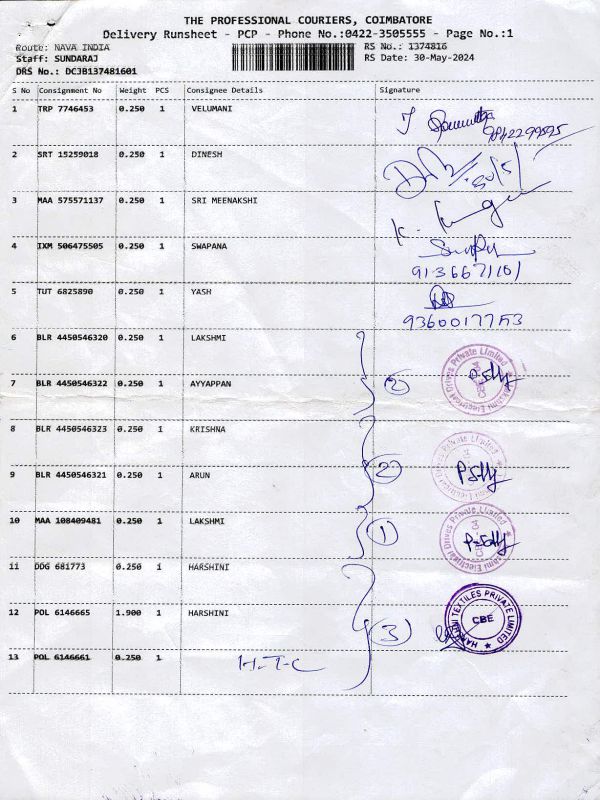 THE PROFESSIONAL COURIERS, COIMBATORE
Delivery Runsheet - PCP - Phone No.:0422-3505555 - Page No.:1
Route: NAVA INDIA RS No.: 1374816
Staff: SUNDARAJ RS Date: 30-May-2024
DRS No.: DCJB137481601
S No Consignment No Weight PCS Consignee Details Signature
1 TRP 7746453 0.250 1 VELUMANI
9842299595
2 SRT 15259018 0.250 1 DINESH
3 MAA 575571137 0.250 1 SRI MEENAKSHI
4 IXM 506475505 0.250 1 SWAPANA
9136671101
5 TUT 6825890 0.250 1 YASH
9360017753
6 BLR 4450546320 0.250 1 LAKSHMI
7 BLR 4450546322 0.250 1 AYYAPPAN 2
Lakshmi Electrical Drives Private Limited
8 BLR 4450546323 0.250 1 KRISHNA
9 BLR 4450546321 0.250 1 ARUN 2
10 MAA 108409481 0.250 1 LAKSHMI 1
11 DDG 681773 0.250 1 HARSHINI
12 POL 6146665 1.900 1 HARSHINI 3
HARSHINI TEXTILES PRIVATE LIMITED
CBE
13 POL 6146661 0.250 1 H.T.C